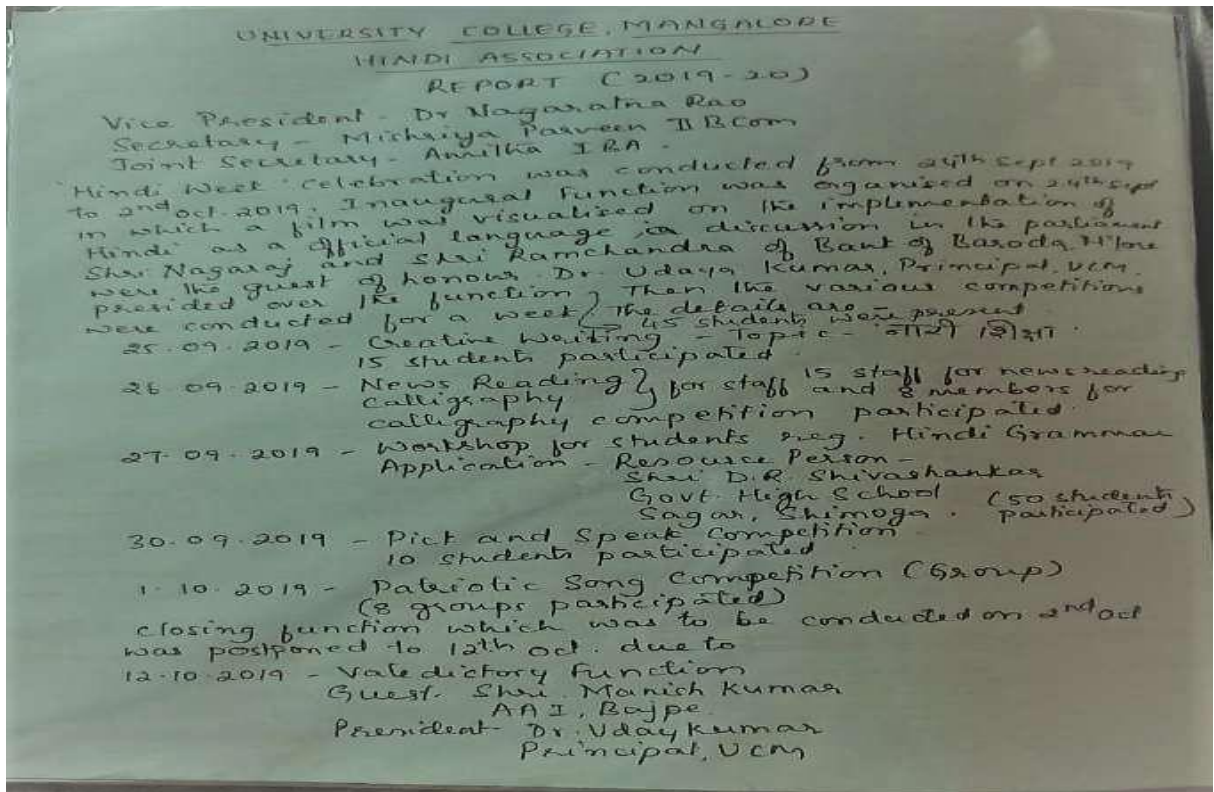 UNIVERSITY COLLEGE, MANGALORE
HINDI ASSOCIATION
REPORT (2019-20)
Vice President - Dr Nagaratna Rao
Secretary - Mishriya Parveen II BCom
Joint Secretary - Amitha I BA.
'Hindi Week' Celebration was conducted from 24th Sept 2019
to 2nd Oct. 2019. Inaugural Function was organised on 24th Sept
in which a film was visualised on the implementation of
Hindi as a official language in discussion in the parliament
Shri Nagaraj and Shri Ramchandra of Bank of Baroda, M'lore
were the guest of honour. Dr. Udaya Kumar, Principal, UCM.
presided over the function. Then the various competitions
were conducted for a week. The details are -
45 students were present
25.09.2019 - Creative Writing - Topic - नारी शिक्षा.
15 students participated.
26.09.2019 - News Reading } for staff 15 staff for newsreading
Calligraphy and 8 members for
calligraphy competition participated.
27.09.2019 - Workshop for students reg. Hindi Grammar
Application - Resource Person -
Shri D.R. Shivashankar
Govt. High School (50 students
Sagar, Shimoga. participated)
30.09.2019 - Pick and Speak Competition
10 students participated
1.10.2019 - Patriotic Song Competition (Group)
(8 groups participated)
closing function which was to be conducted on 2nd Oct
was postponed to 12th Oct. due to
12.10.2019 - Valedictory Function
Guest - Shri Manish Kumar
AAI, Bajpe.
President - Dr. Uday Kumar
Principal, UCM